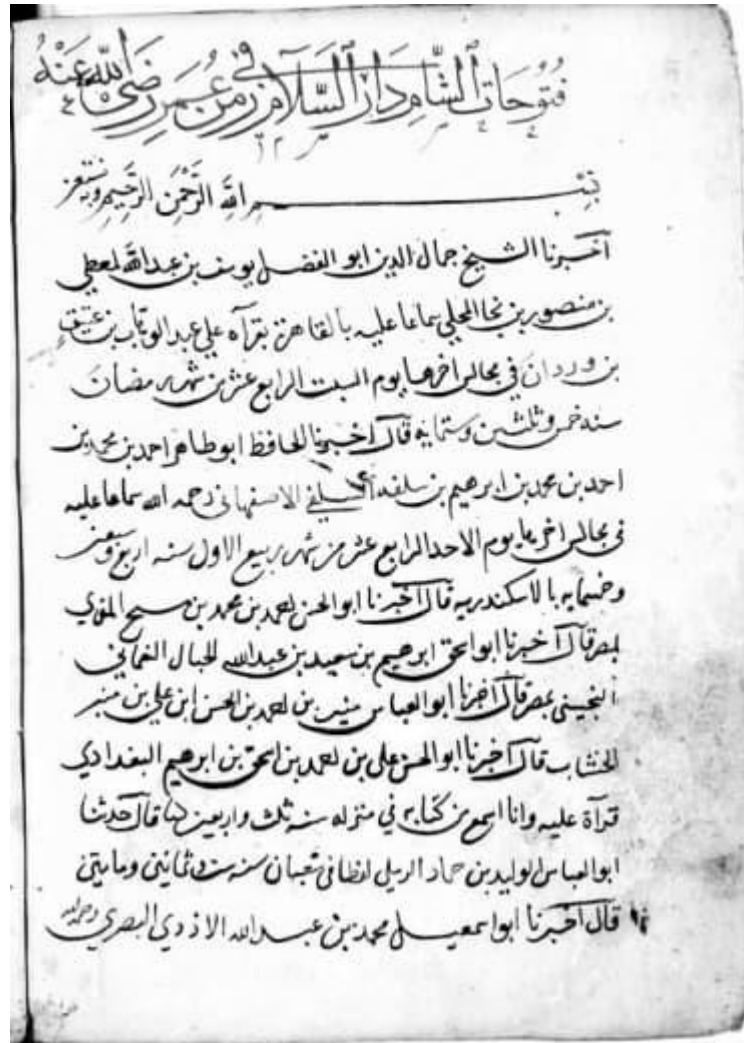 فتوحات الشام دار السلام في زمن عمر رضي الله عنه
بسم الله الرحمن الرحيم وبه نستعين
أخبرنا الشيخ جمال الدين ابو الفضل يوسف بن عبد المعطي
بن منصور بن نجا المحلي سماعا عليه بالقاهرة بقرآه علي عبد الوهاب بن عتيق
بن وردان في مجالس اخرها يوم السبت الرابع عشر من شهر رمضان
سنه خمس وثلثين وستمايه قال اخبرنا الحافظ ابو طاهر احمد بن محمد بن
احمد بن محمد بن ابرهيم بن سلفه السلفي الاصفهاني رحمه الله سماعا عليه
في مجالس اخرها يوم الاحد الرابع عشر من شهر ربيع الاول سنه اربع وسبعين
وخمسمايه بالاسكندريه قال أخبرنا ابو الحسن احمد بن محمد بن مسبح المقري
بمصر قال أخبرنا ابو اسحق ابرهيم بن سعيد بن عبد الله الحبال النعماني
التجيبي بمصر قال اخبرنا ابو العباس منير بن احمد بن الحسن ابن علي بن منير
الخشاب قال أخبرنا ابو الحسن علي بن احمد بن اسحق بن ابرهيم البغدادي
قرآة عليه وانا اسمع من كتابه في منزله سنه ثلث واربعين قال حدثنا
ابو العباس الوليد بن حماد الرملي في شعبان سنه ثمانين ومايتين
قال اخبرنا ابو اسمعيل محمد بن عبد الله الازدي البصري رحمه الله